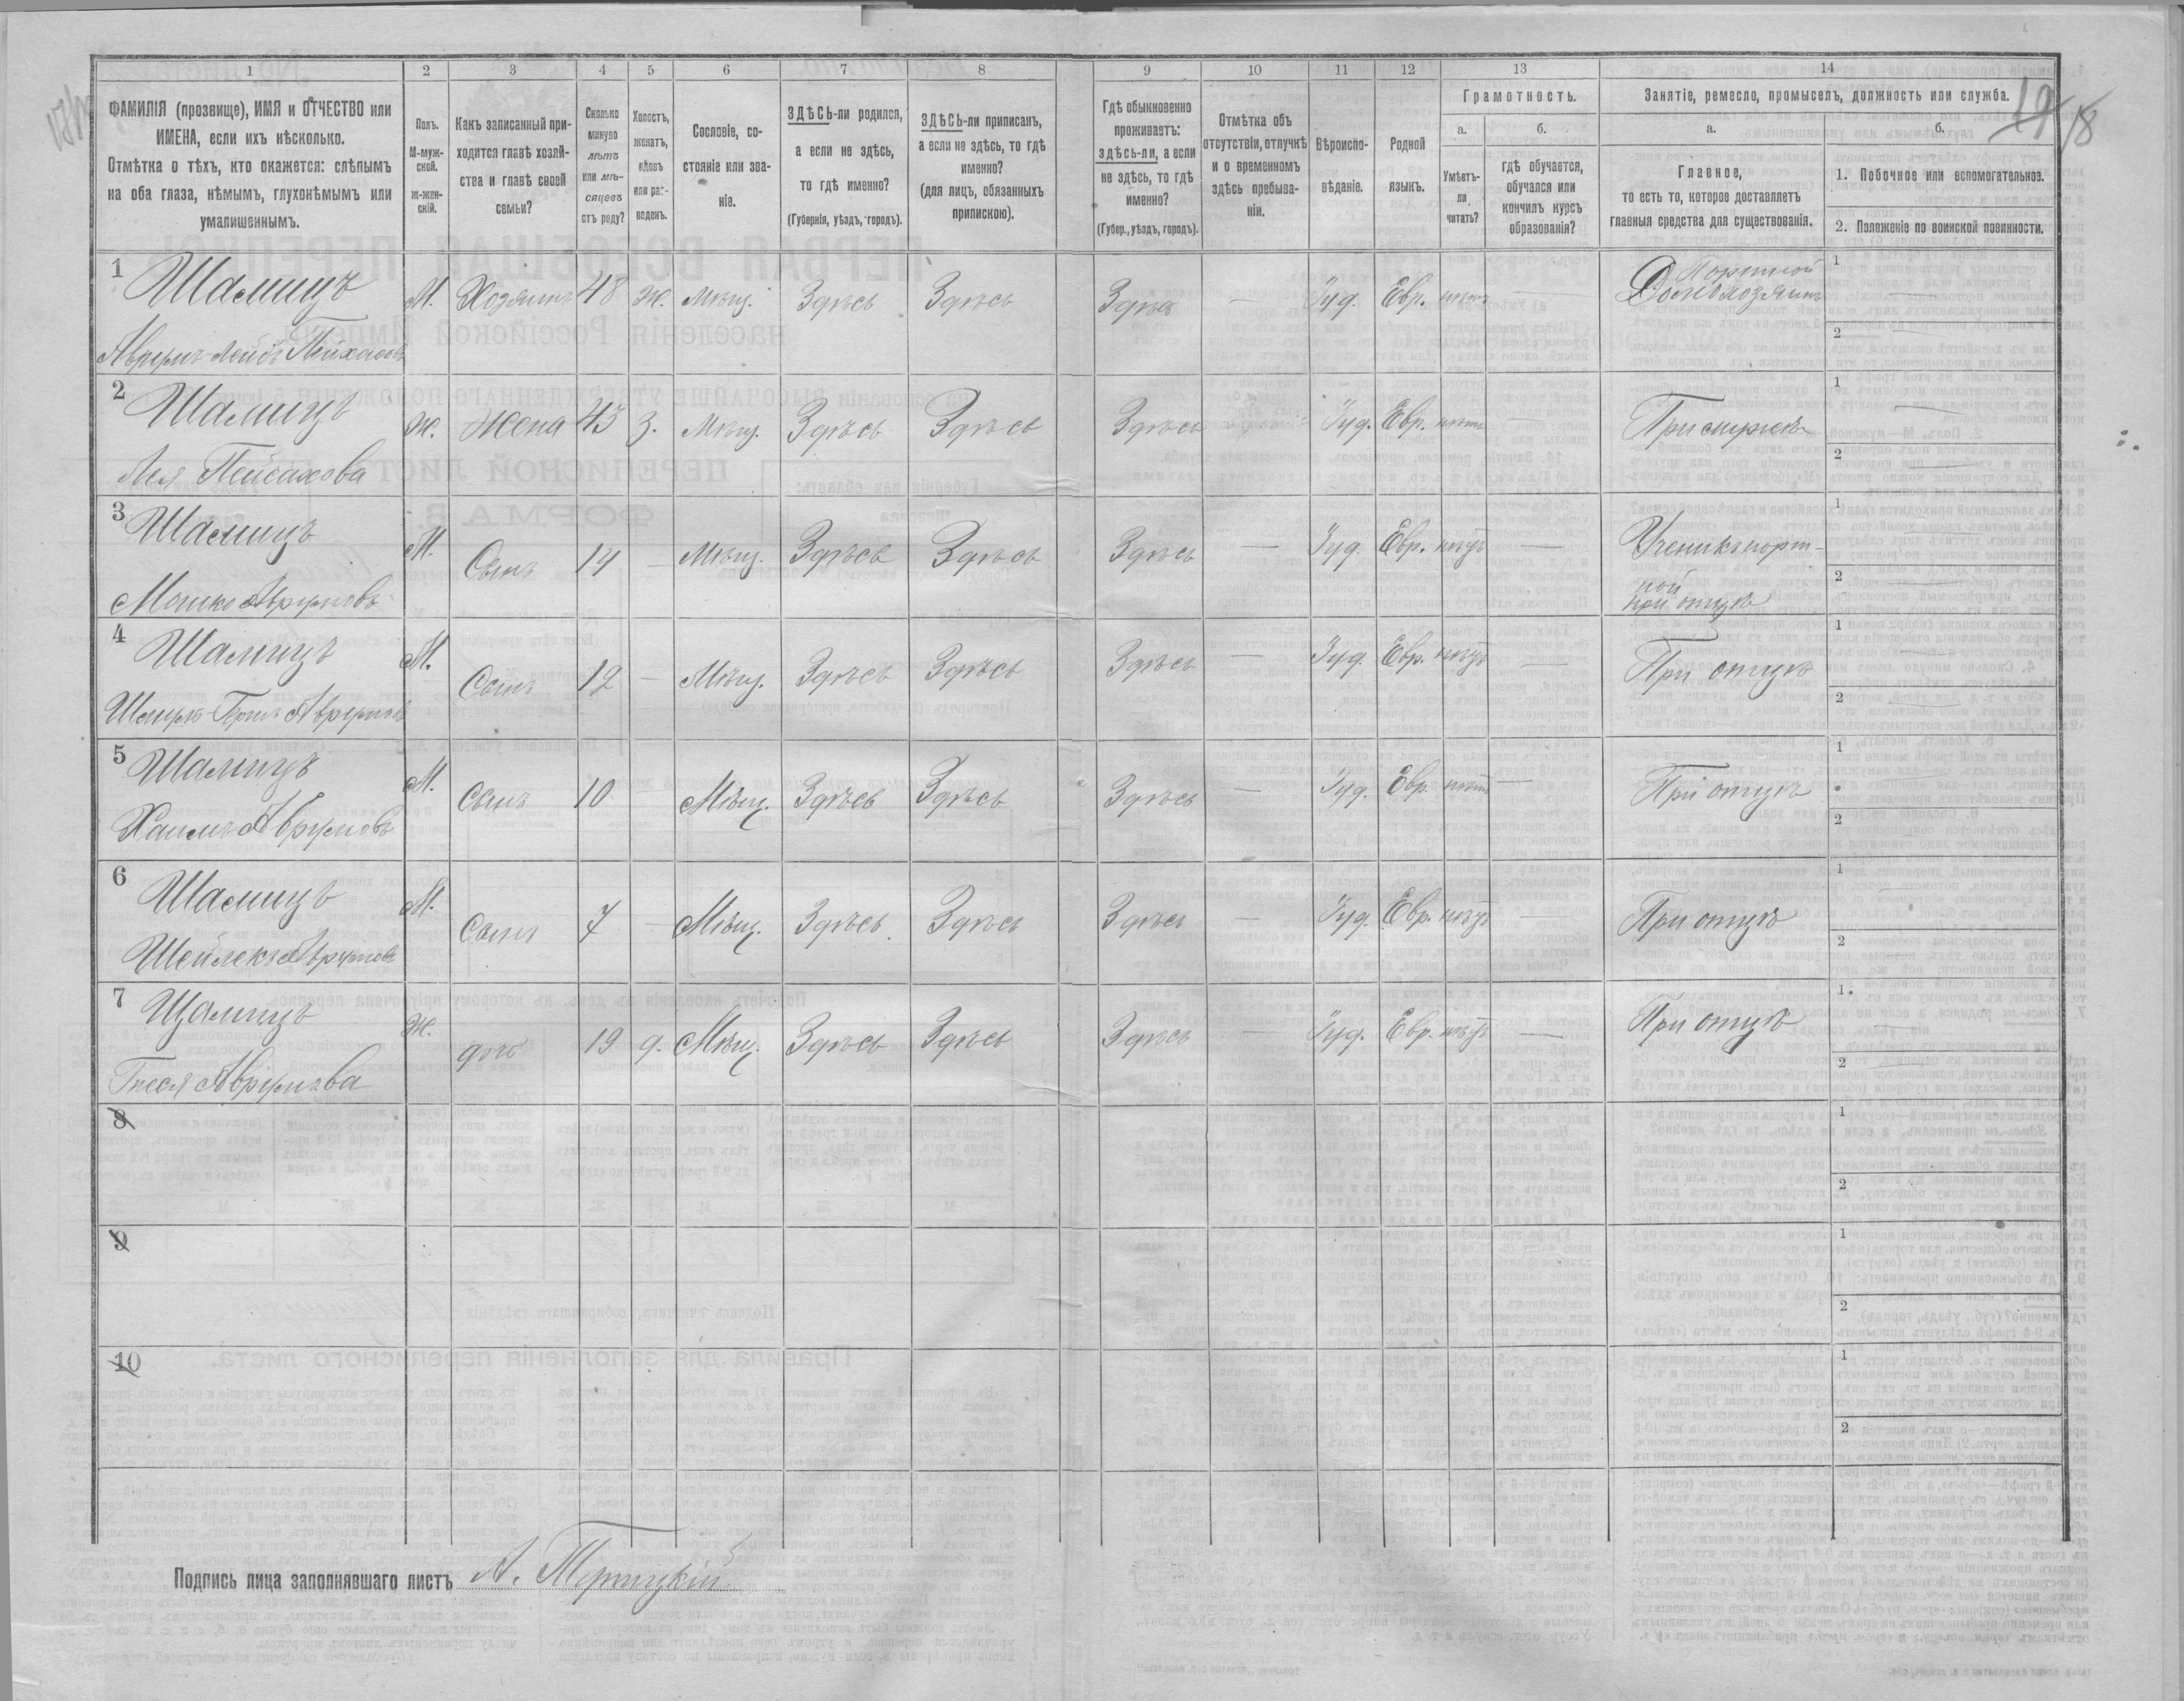 1 2 3 4 5 6 7 8 9 10 11 12 13 14
ФАМИЛІЯ (прозвище), ИМЯ и ОТЧЕСТВО или
ИМЕНА, если ихъ нѣсколько.
Отмѣтка о тѣхъ, кто окажется: слѣпымъ
на оба глаза, нѣмымъ, глухонѣмымъ или
умалишеннымъ.
Полъ.
М-муж-
ской.
Ж-жен-
скій.
Какъ записанный при-
ходится главѣ хозяй-
ства и главѣ своей
семьи?
Сколько
минуло
лѣтъ
или мѣ-
сяцевъ
отъ роду?
Холостъ,
женатъ,
вдовъ
или раз-
веденъ.
Сословіе, со-
стояніе или зва-
ніе.
ЗДѢСЬ-ли родился,
а если не здѣсь,
то гдѣ именно?
(Губернія, уѣздъ, городъ).
ЗДѢСЬ-ли приписанъ,
а если не здѣсь, то гдѣ
именно?
(для лицъ, обязанныхъ
припискою).
Гдѣ обыкновенно
проживаетъ:
здѣсь-ли, а если
не здѣсь, то гдѣ
именно?
(Губер., уѣздъ, городъ).
Отмѣтка объ
отсутствіи, отлучкѣ
и о временномъ
здѣсь пребыва-
ніи.
Вѣроиспо-
вѣданіе.
Родной
языкъ.
Грамотность.
а.
Умѣетъ-
ли
читать?
б.
гдѣ обучается,
обучался или
кончилъ курсъ
образованія?
Занятіе, ремесло, промыселъ, должность или служба.
а.
Главное,
то есть то, которое доставляетъ
главныя средства для существованія.
б.
1. Побочное или вспомогательное.
2. Положеніе по воинской повинности.
19 18
1 Шамицъ М. Хозяинъ 48 Ж. Мѣщ. Здѣсь Здѣсь Здѣсь — Іуд. Евр. нѣтъ — Портной 1 —
Домохозяинъ
2
2 Шамицъ Ж. Жена 43 З. Мѣщ. Здѣсь Здѣсь Здѣсь Іуд. Евр. нѣтъ — При мужѣ 1 —
Лея Пейсахова 2 —
3 Шамицъ М. Сынъ 14 — Мѣщ. Здѣсь Здѣсь Здѣсь — Іуд. Евр. нѣтъ — Ученикъ порт- 1
Мошко Аврумовъ ной 2
при отцѣ
4 Шамицъ М. Сынъ 12 — Мѣщ. Здѣсь Здѣсь Здѣсь — Іуд. Евр. нѣтъ — При отцѣ 1 —
Аврумовъ 2 —
5 Шамицъ М. Сынъ 10 Мѣщ. Здѣсь Здѣсь Здѣсь — Іуд. Евр. нѣтъ — При отцѣ 1 —
Хаимъ Аврумовъ 2
6 Шамицъ М. Сынъ 7 — Мѣщ. Здѣсь Здѣсь Здѣсь — Іуд. Евр. нѣтъ — При отцѣ 1
Аврумовъ 2
7 Шамицъ Ж. дочь 19 д. Мѣщ. Здѣсь Здѣсь Здѣсь — Іуд. Евр. нѣтъ — При отцѣ 1
Аврумова 2
8 1
2
9 1
2
10 1
2
Подпись лица заполнявшаго листъ А.